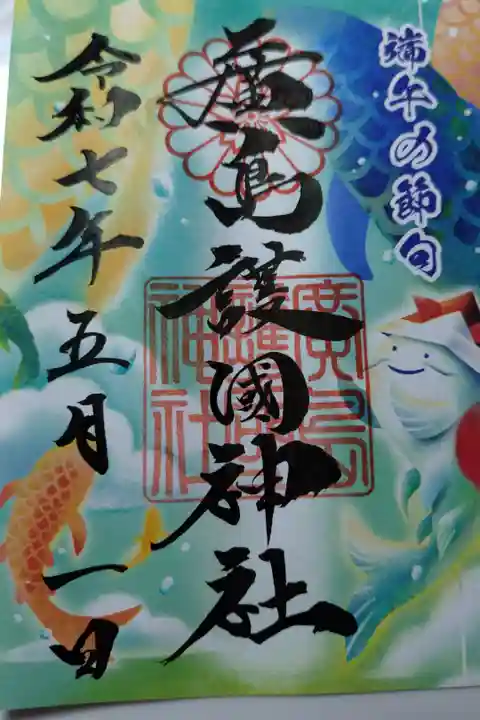 端午の節句
廣島護國神社
廣島護國神社
令和七年五月一日